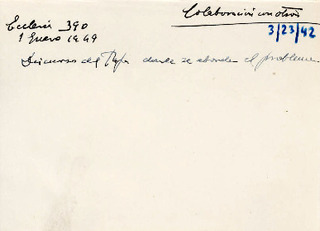 Colaboración con otros
Ecclesia 390
1 Enero 1949
3/23/42
Discurso del Papa donde se aborda el problema.